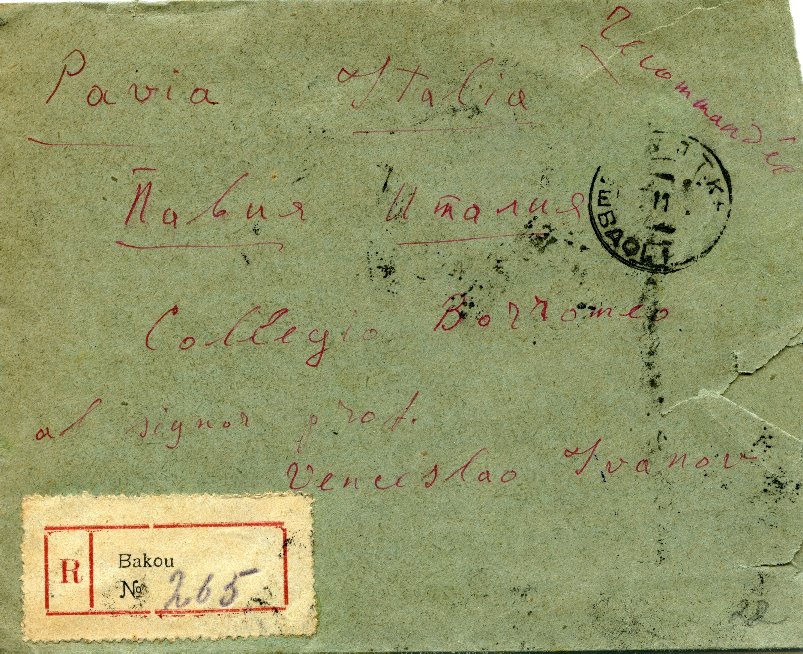 Recommandée
Pavia Italia
Павия Италия
Collegio Borromeo
al signor prof.
Venceslao Ivanov
R Bakou
№ 265
22